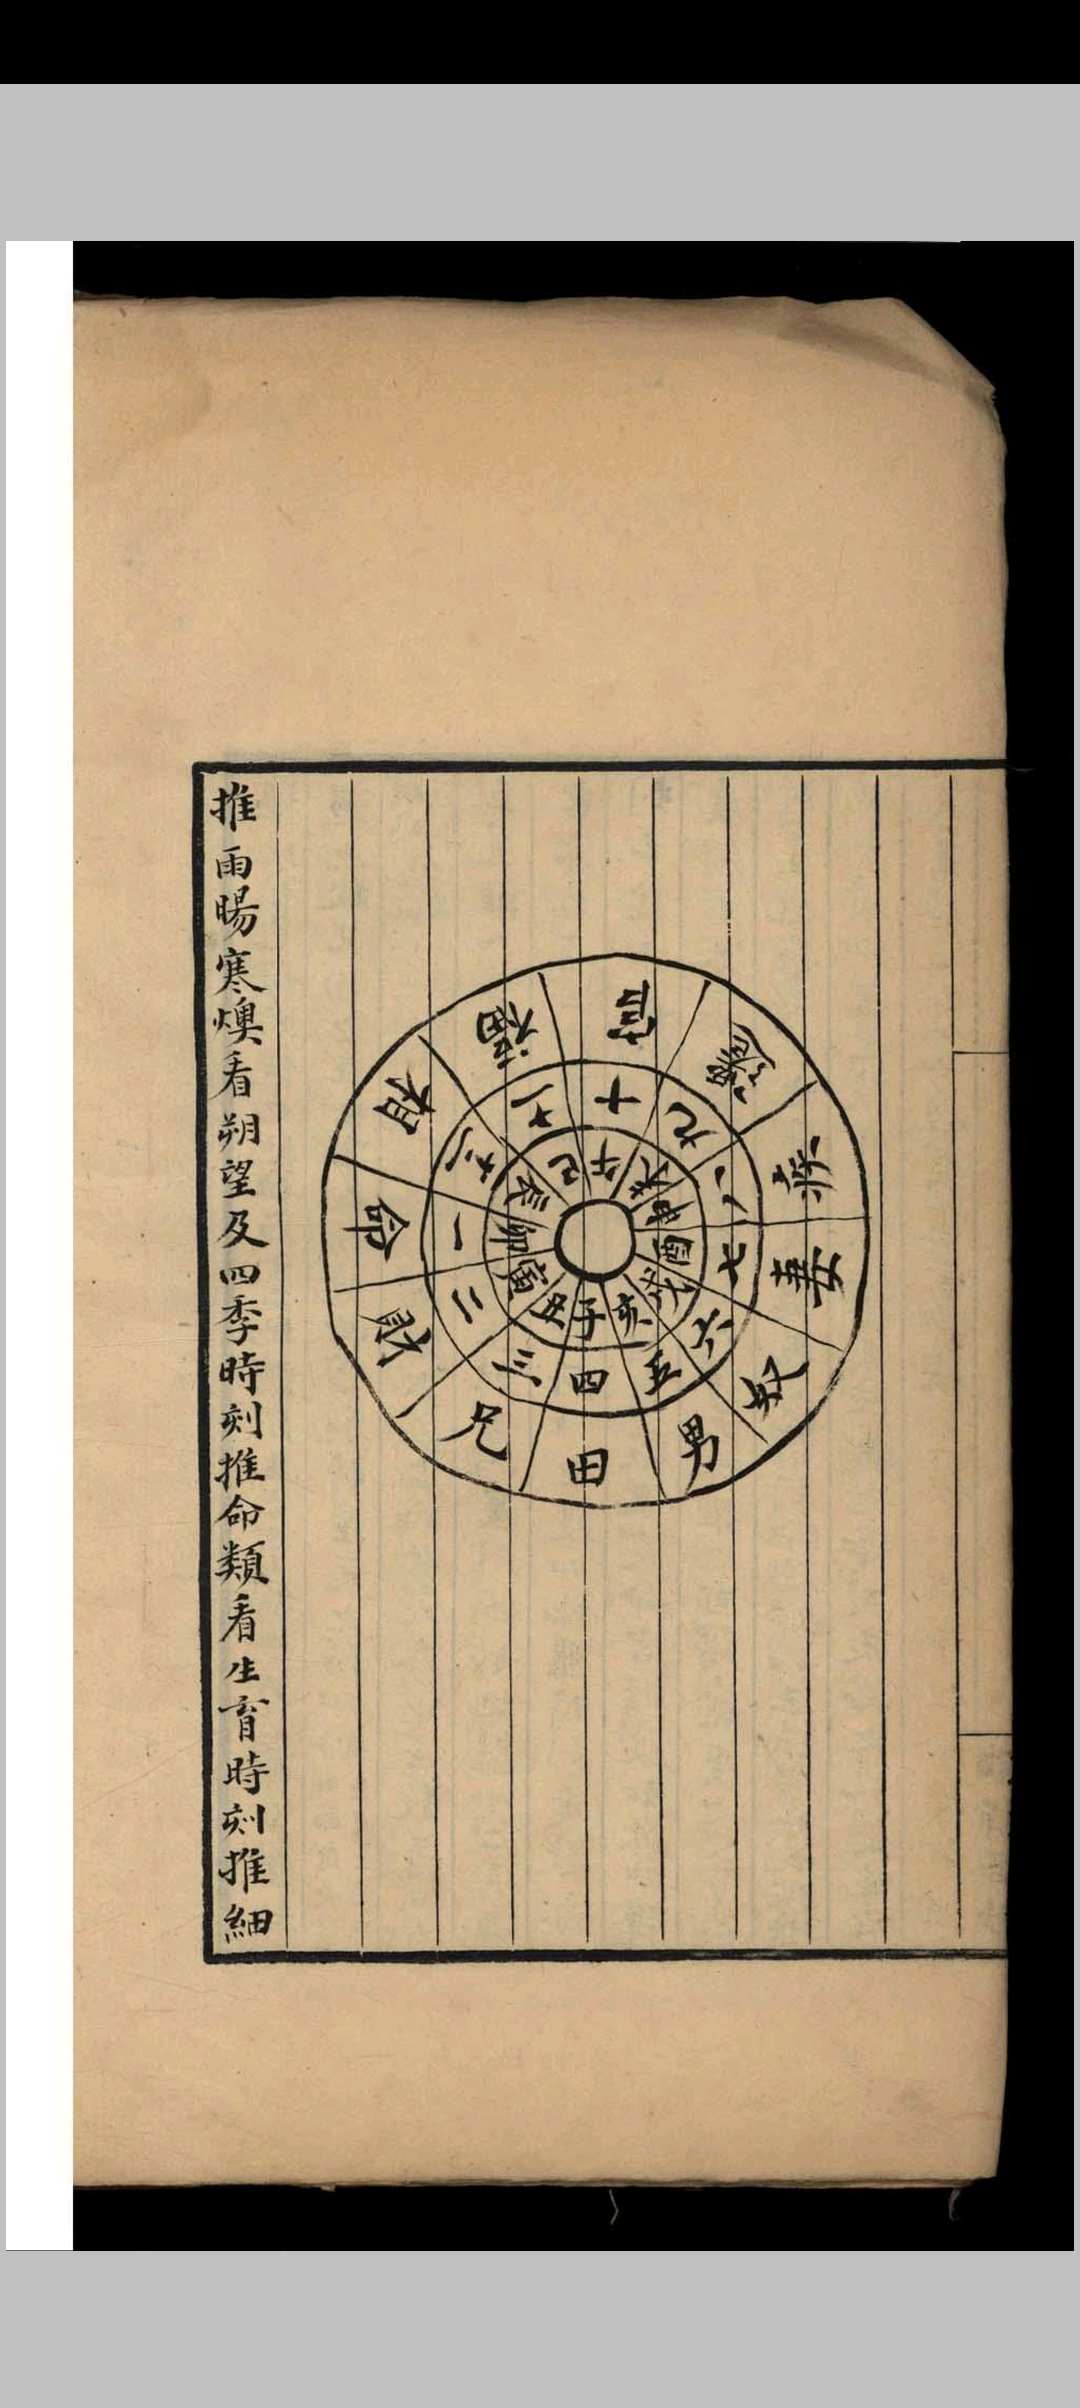 命財兄田男奴妻疾遷官福相
一二三四五六七八九十十一十二
卯寅丑子亥戌酉申未午巳辰
推雨暘寒燠看朔望及四季時刻推命類看生育時刻推細